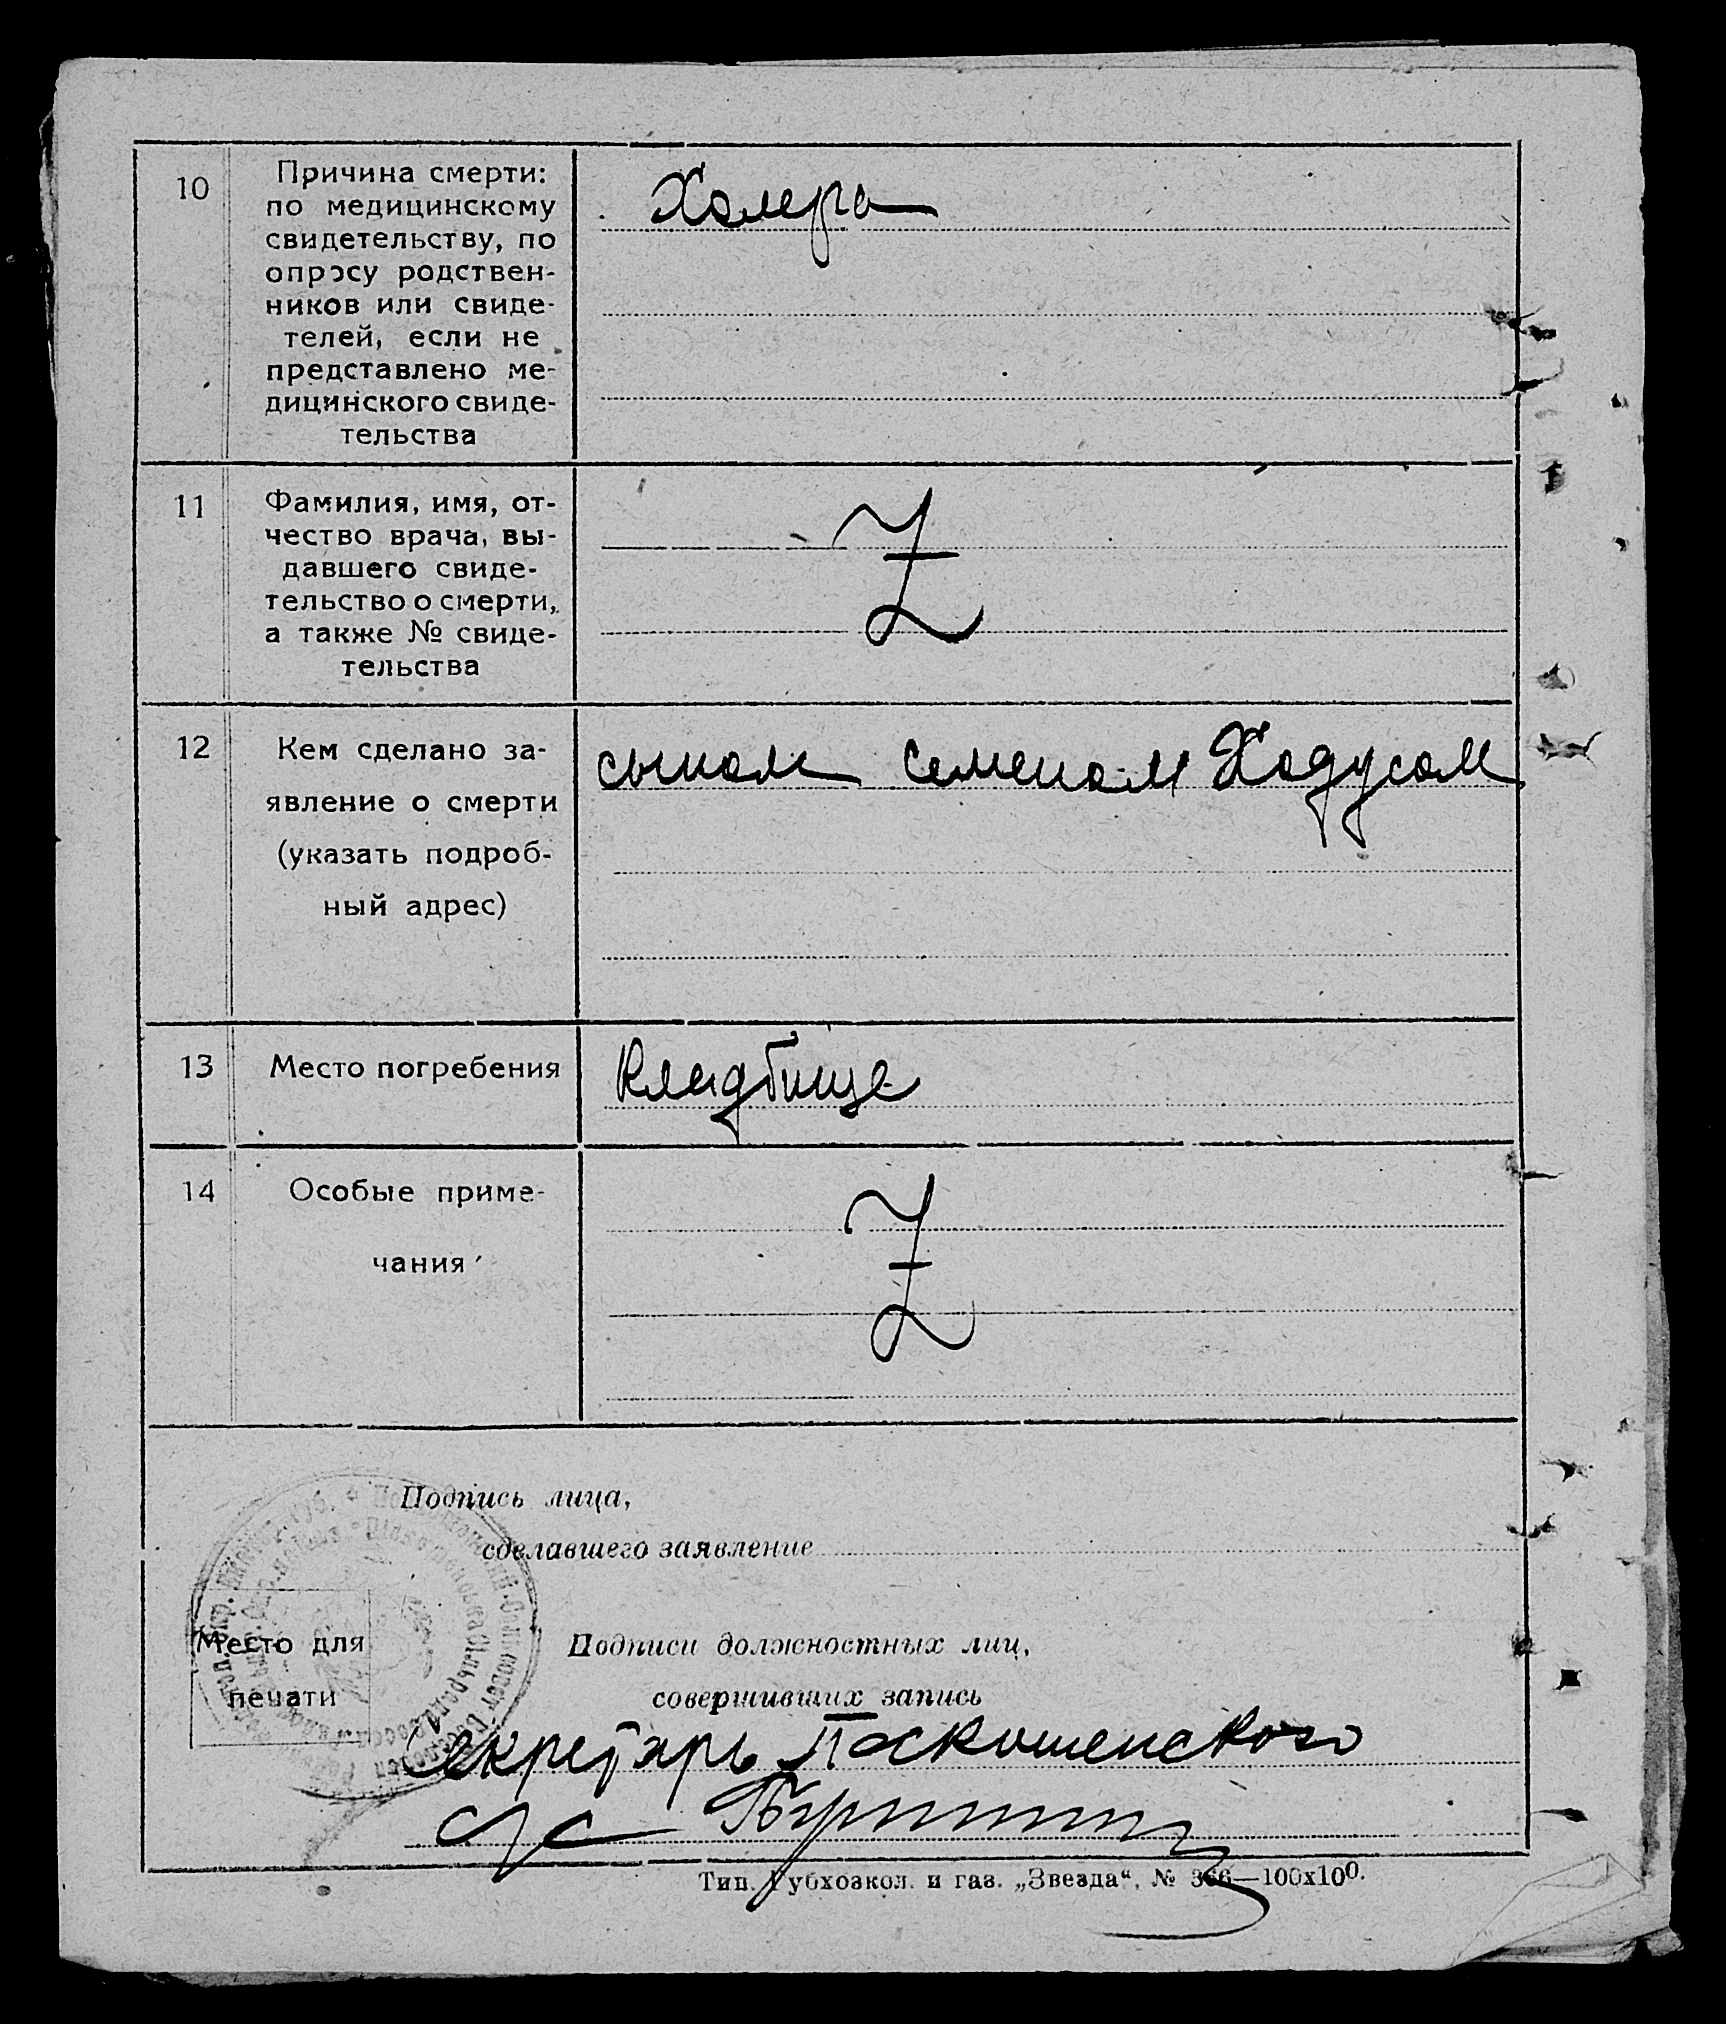 10
Причина смерти:
по медицинскому
свидетельству, по
опросу родствен-
ников или свиде-
телей, если не
представлено ме-
дицинского свиде-
тельства
Холера
11
Фамилия, имя, от-
чество врача, вы-
давшего свиде-
тельство о смерти,
а также № свиде-
тельства
Z
12
Кем сделано за-
явление о смерти
(указать подроб-
ный адрес)
сыном Семеном Ходусом
13
Место погребения
Кладбище
14
Особые приме-
чания
Z
Подпись лица,
сделавшего заявление
Место для
печати
Подписи должностных лиц,
совершивших запись
Секретарь Поскошенского
с/с
Тип. Губхозкол. и газ. „Звезда“, № 366—100х100.